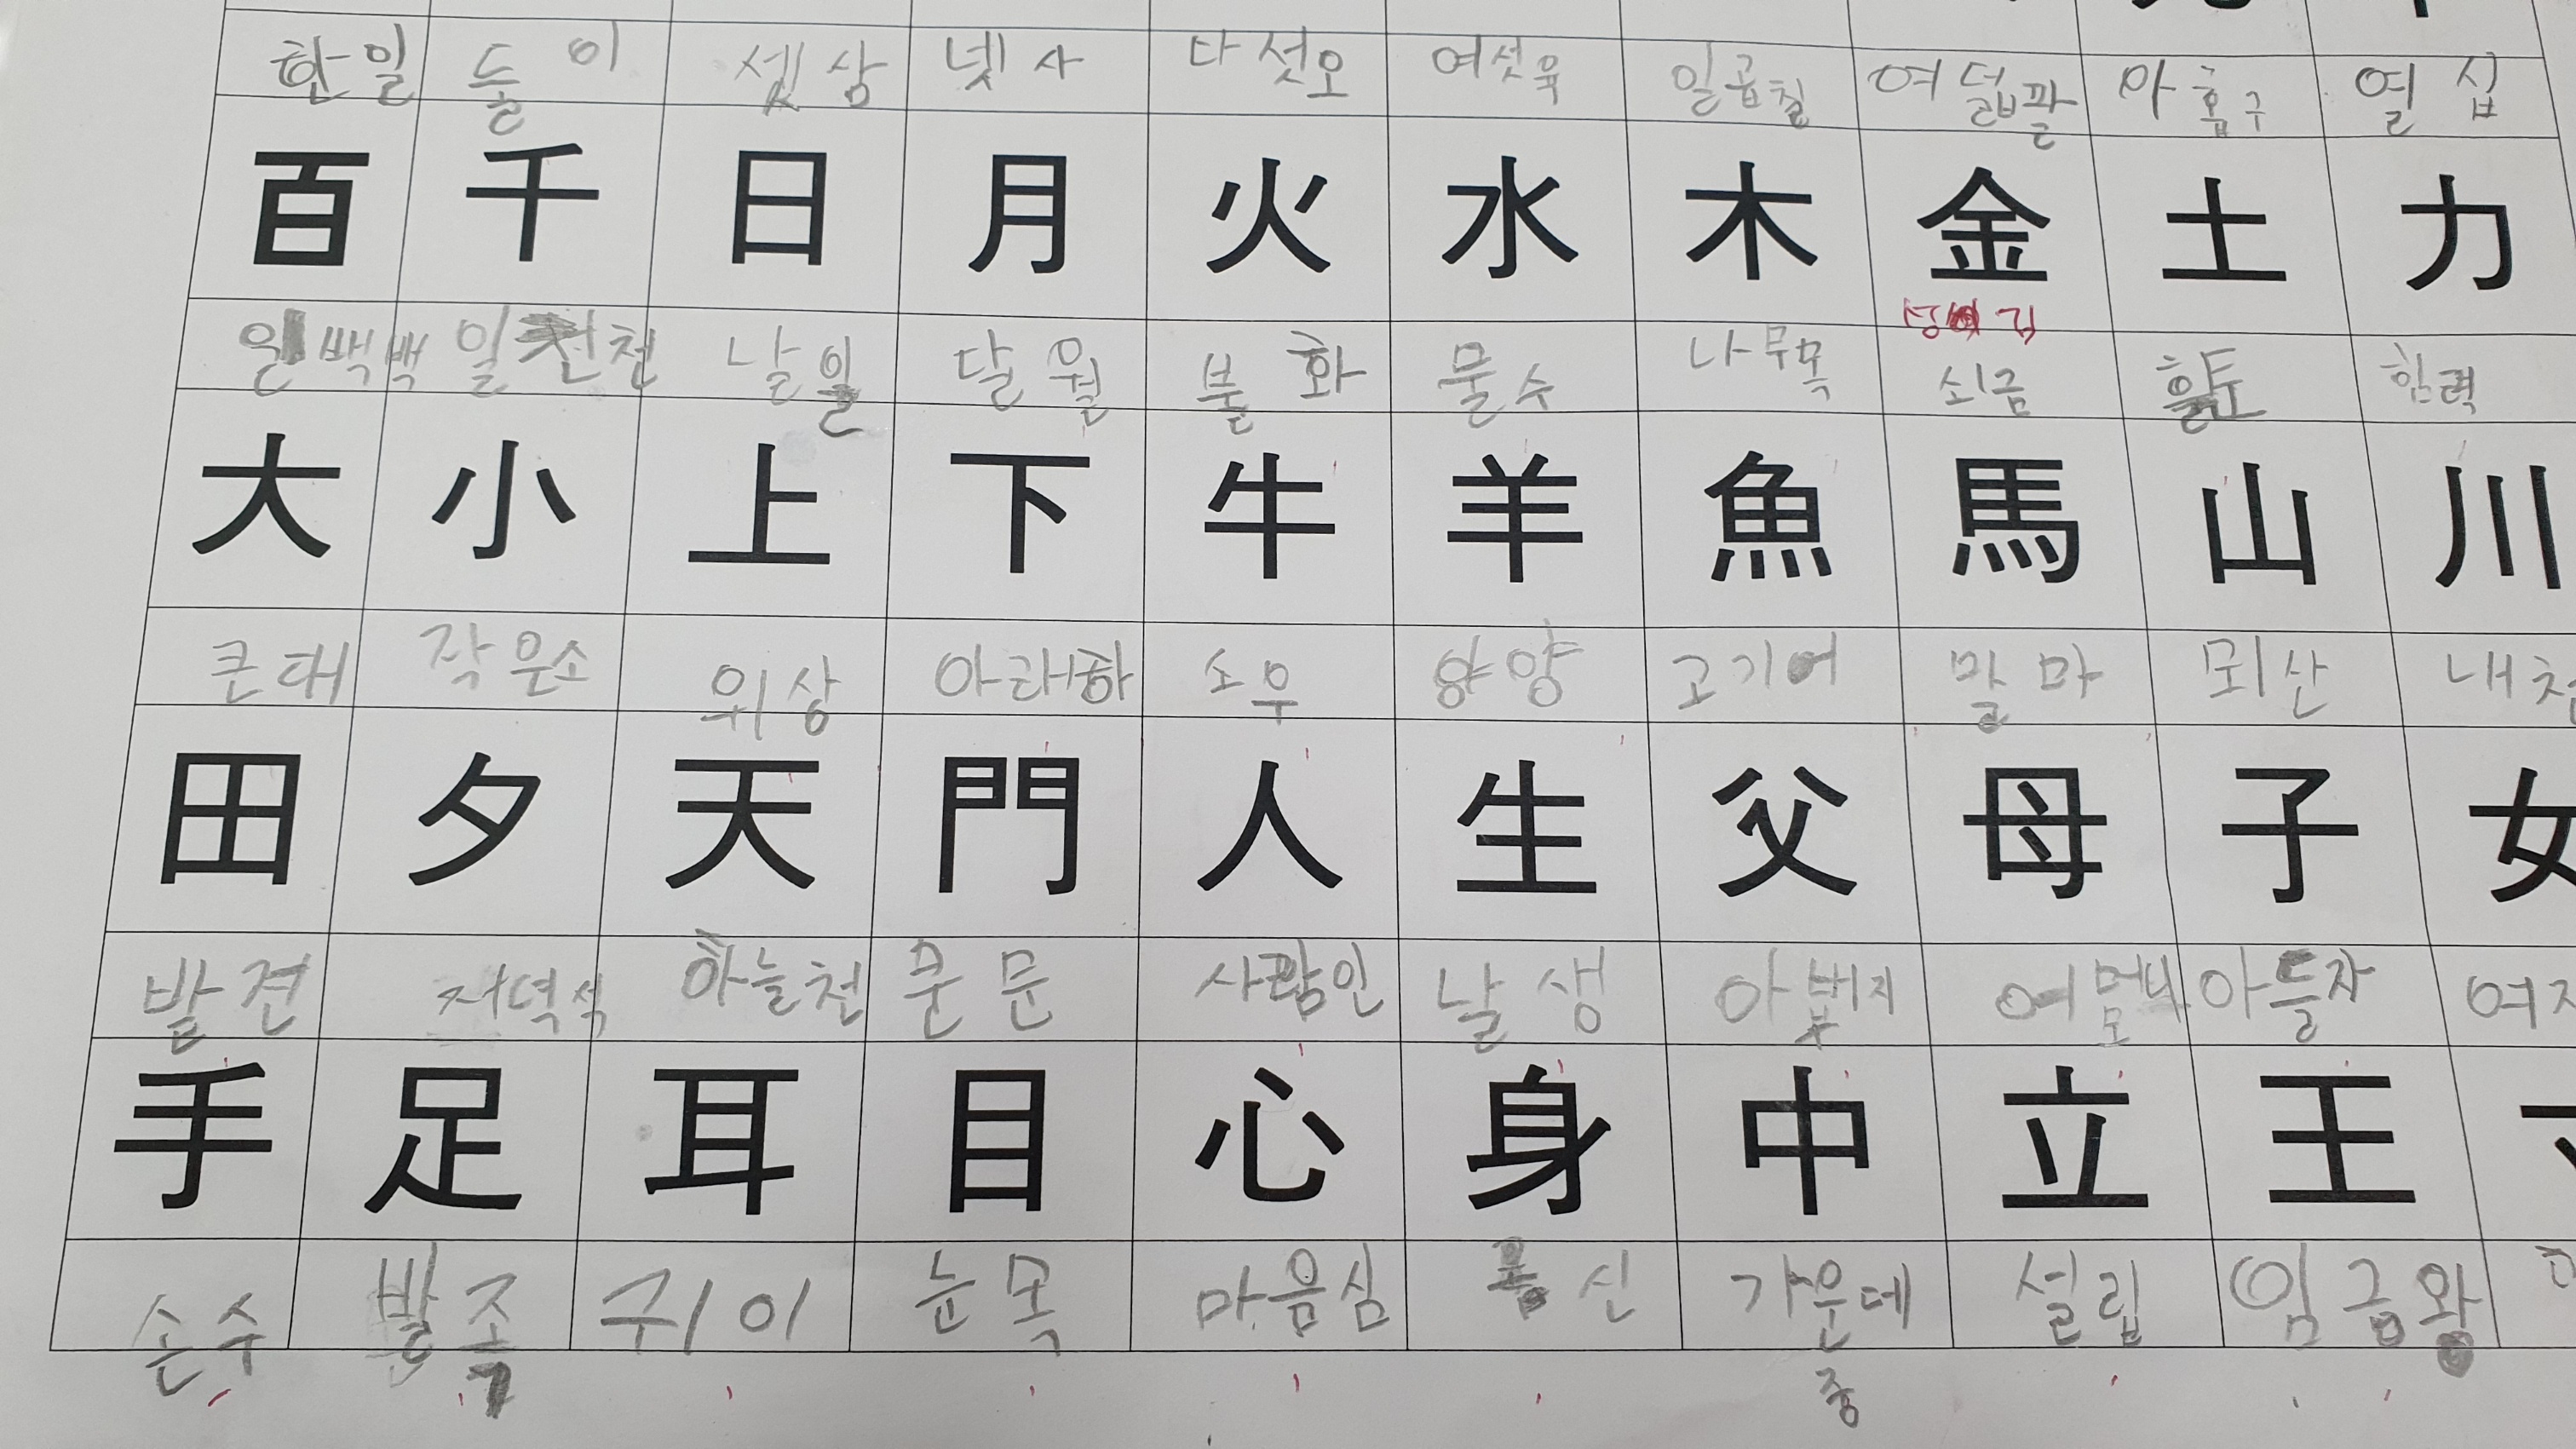 한일 둘이 셋삼 넷사 다섯오 여섯육 일곱칠 여덟팔 아홉구 열십
百 千 日 月 火 水 木 金 土 力
김
일백백 일천천 날일 달월 불화 물수 나무목 쇠금 흙토 힘력
大 小 上 下 牛 羊 魚 馬 山 川
큰대 작은소 위상 아래하 소우 양양 고기어 말마 뫼산 내천
田 夕 天 門 人 生 父 母 子 女
발견 저녁석 하늘천 문문 사람인 날생 아버지부 어머니모 아들자 여자
手 足 耳 目 心 身 中 立 王
손수 발족 귀이 눈목 마음심 몸신 가운데중 설립 임금왕